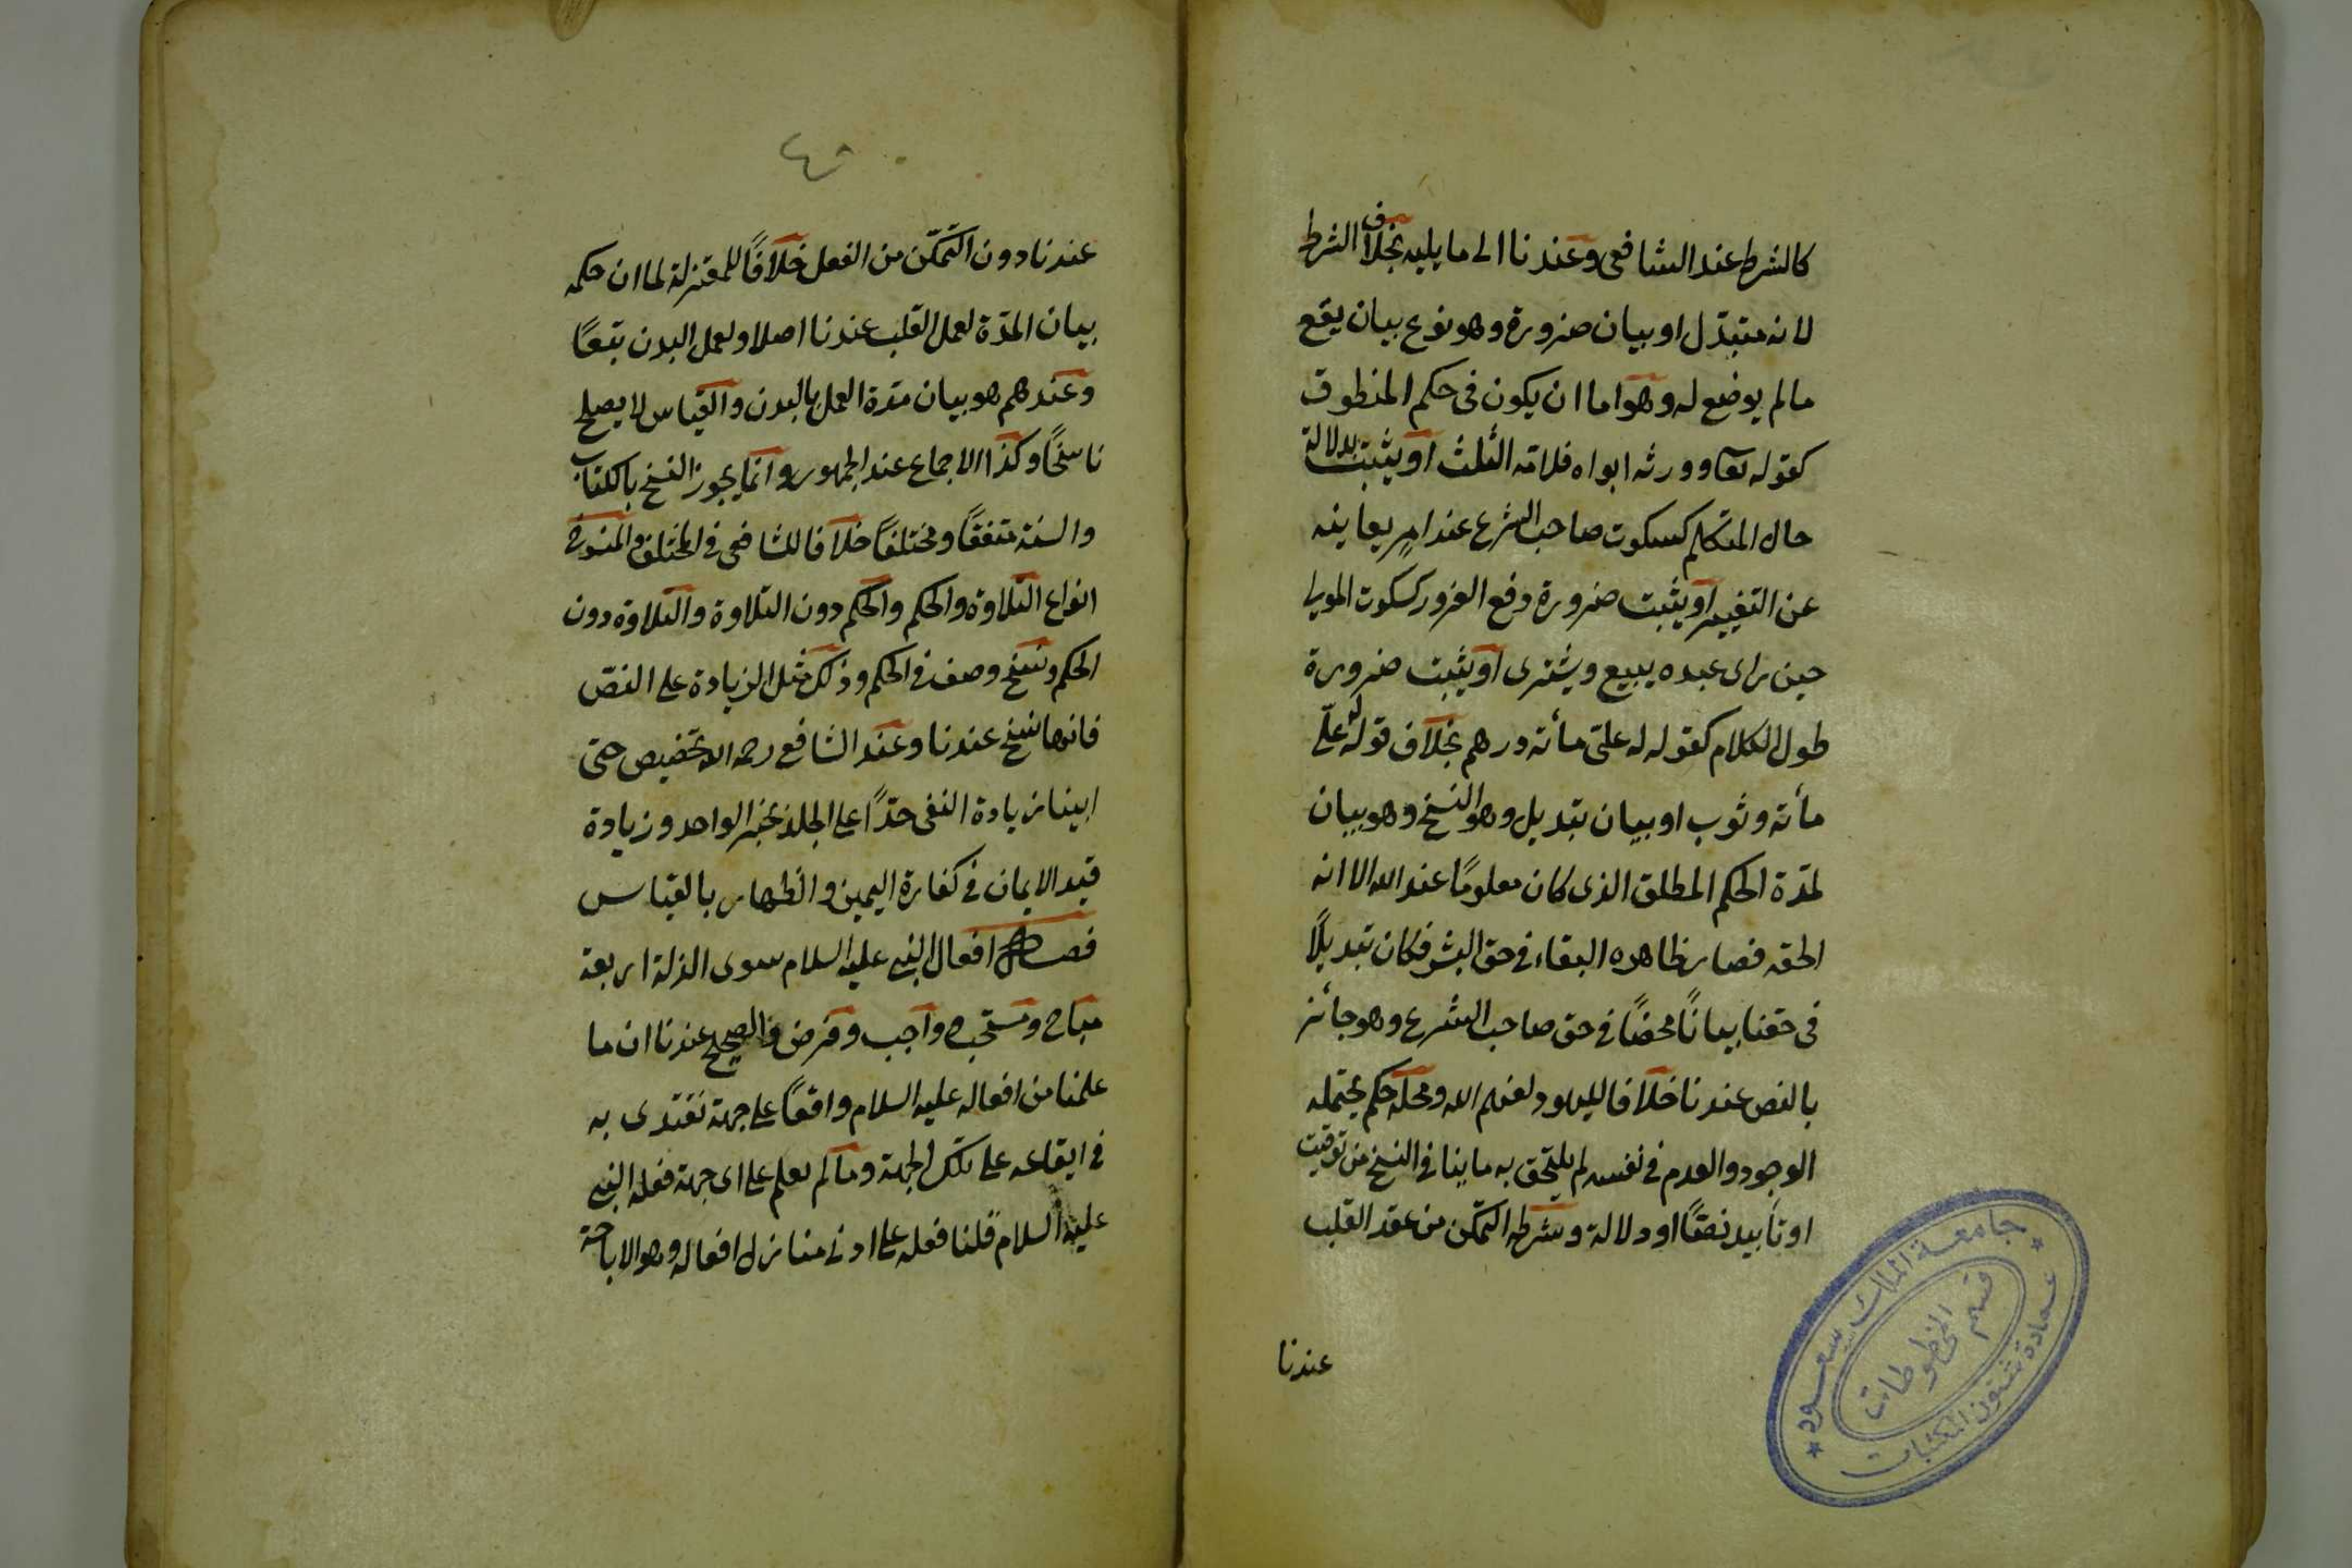 كالشرط عند الشافعى وعندنا الى ما يليه بخلاف الشرط
لانه متبدّل او بيان ضرورة وهو نوع بيان يقع
ما لم يوضع له وهو اما ان يكون فى حكم المنطوق
كقوله تعا وورثه ابواه فلامّه الثلث او يثبت بدلالة
حال المتكلم كسكوت صاحب الشرع عند امرٍ يعاينه
عن التغيير او يثبت ضرورة دفع الغرور كسكوت المولى
حين راى عبده يبيع ويشترى او يثبت ضرورة
طول الكلام كقوله له علىّ مأئة درهم بخلاف قوله له علىّ
مأئة وثوب او بيان تبديل وهو النسخ وهو بيان
لمدّة الحكم المطلق الذى كان معلومًا عند الله الا انه
اطلقه فصار ظاهره البقاء فى حق البشر فكان تبديلًا
فى حقنا بيانًا محضًا فى حق صاحب الشرع وهو جائز
بالنص عندنا خلافا لليهود لعنهم الله ومحله حكم يحتمله
الوجود والعدم فى نفسه لم يلتحق به ما ينافى النسخ من توقيت
او تأبيد نصًا او دلالة وشرطه التمكن من عقد القلب
عندنا
جامعة الملك سعود
قسم المخطوطات
عمادة شئون المكتبات
٤٥
عندنا دون التمكّن من الفعل خلافًا للمعتزلة لما ان حكمه
بيان المدّة لعمل القلب عندنا اصلا ولعمل البدن تبعًا
وعندهم هو بيان مدّة العمل بالبدن والقياس لا يصلح
ناسخًا وكذا الاجماع عند الجمهور وانما يجوز النسخ بالكتاب
والسنة متفقًا ومختلفًا خلافا للشافعى فى المختلف والمنسوخ
انواع التلاوة والحكم والحكم دون التلاوة والتلاوة دون
الحكم ونسخ وصف فى الحكم وذلك مثل الزيادة على النصّ
فانها نسخ عندنا وعند الشافعى رحمه الله تخصيص حتى
ابينا زيادة النفى حدًّا على الجلد بخبر الواحد وزيادة
قيد الايمان فى كفارة اليمين والظهار بالقياس
فصل افعال النبى عليه السلام سوى الزلة اربعة
مباح ومستحب وواجب وفرض والصحيح عندنا ان ما
علمنا من افعاله عليه السلام واقعًا على جهة نقتدى به
فى ايقاعه على تلك الجهة وما لم نعلم على اى جهة فعله النبى
عليه السلام قلنا فعله على ادنى منازل افعاله وهو الاباحة